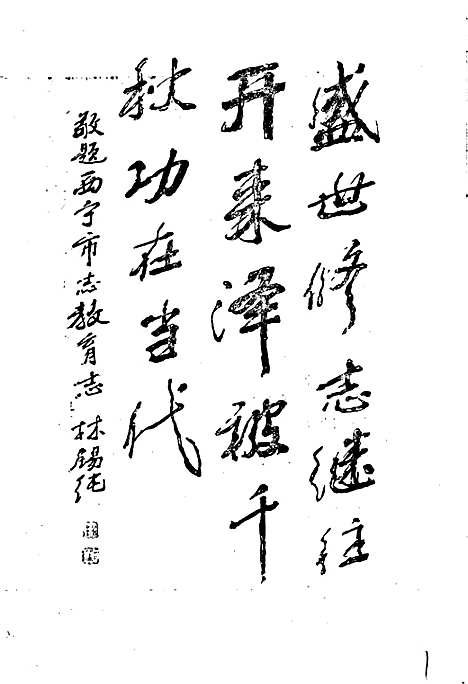 盛世修志继往
开来泽被千
秋功在当代
敬题西宁市志教育志 林锡纯